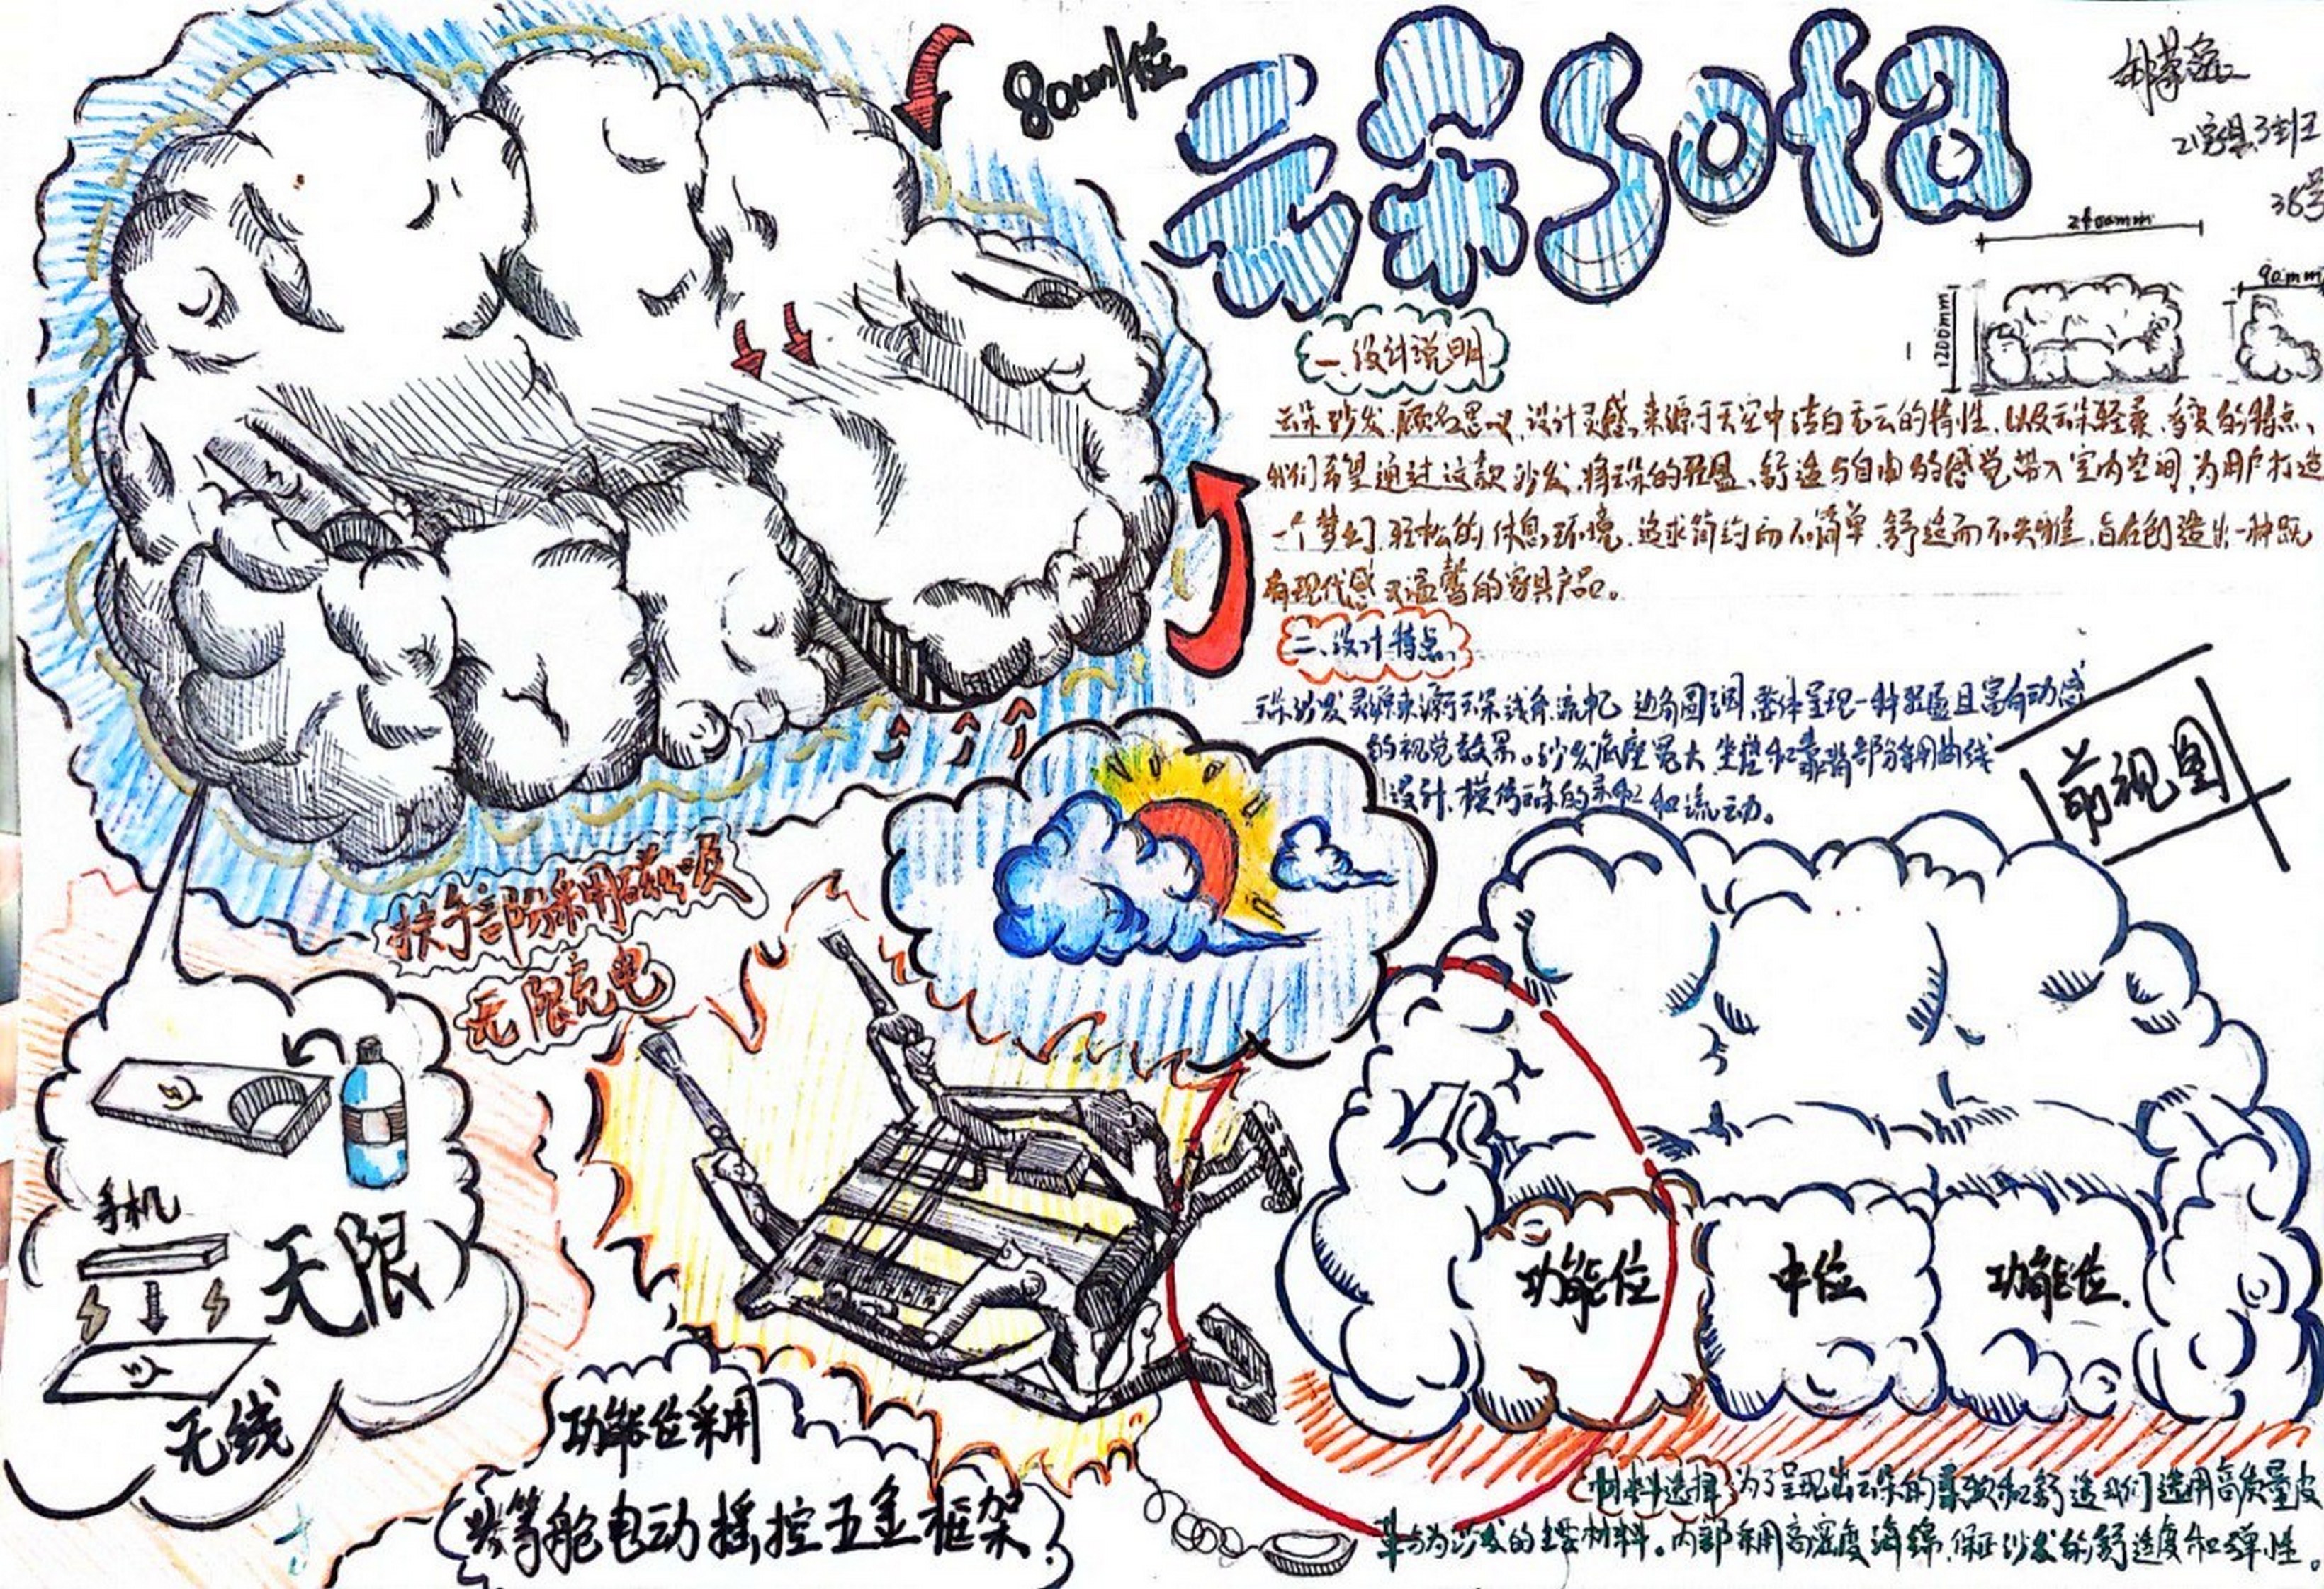 云朵Sofa
80cm/位
21家具3班
38号
2400mm
1200mm
90mm
一、设计说明
云朵沙发,顾名思义,设计灵感来源于天空中洁白无云的特性,以及云朵轻柔、多变的特点、
我们希望通过这款沙发,将云朵的轻盈、舒适与自由的感觉带入室内空间,为用户打造
一个梦幻、轻松的休息环境,追求简约而不简单,舒适而不失雅,旨在创造出一种既
有现代感又温馨的家具产品。
二、设计特点
云朵沙发灵感来源于云朵,线条流畅,边角圆润,整体呈现一种轻盈且富有动感
的视觉效果。沙发底座宽大,坐垫和靠背部分采用曲线
设计,模仿云朵的柔和和流动。
前视图
扶手部分采用磁吸
无限充电
手机
无限
无线
功能位
中位
功能位.
功能位采用
头等舱电动摇控五金框架.
材料选择 为了呈现出云朵的柔软和舒适我们选用高质量皮
革与为沙发的主要材料。内部采用高密度海绵,保证沙发的舒适度和弹性。